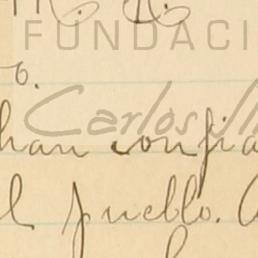 M. R.
FUNDACI
o.
han confia
Carlos
l pueblo.